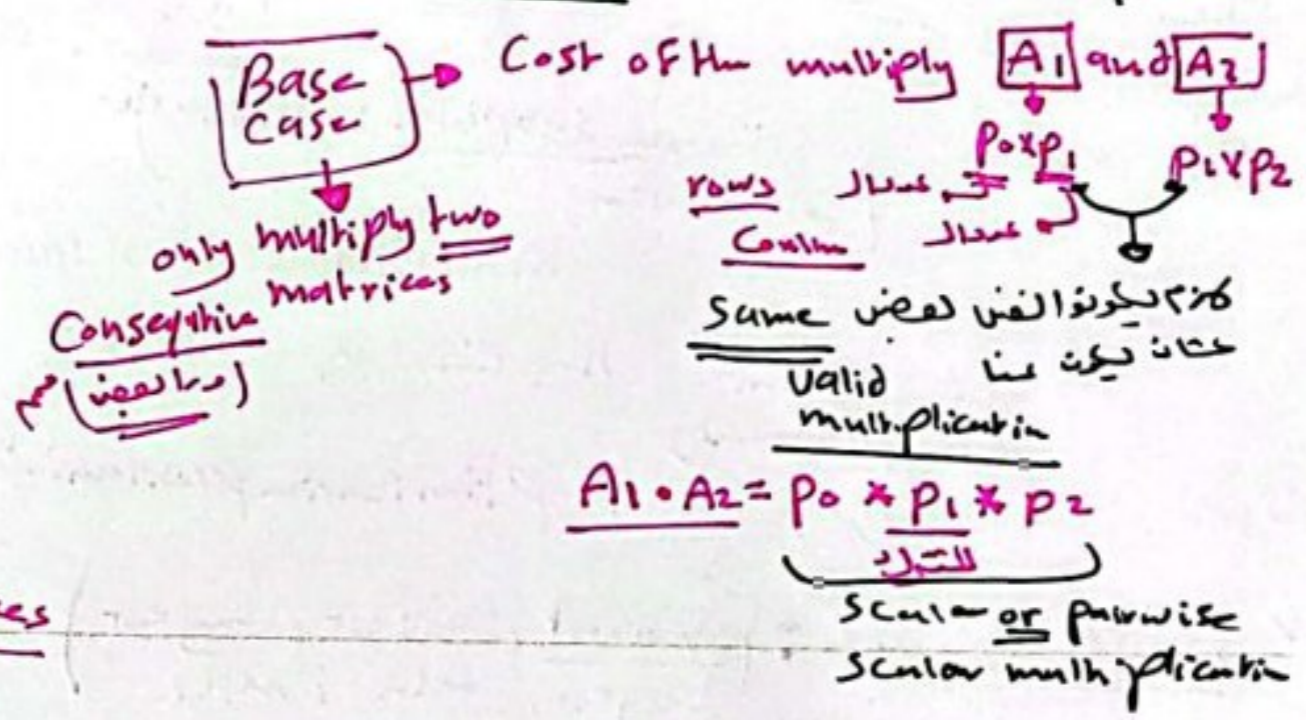 Base case → Cost of the multiply A1 and A2
P0xP1 P1xP2
rows عدد ال
عدد ال
only multiply two
matrices
same لازم يكونوا نفس بعض
عشان يكون عنا
valid
multiplication
A1 • A2 = P0 * P1 * P2
scalar or pairwise
scalar multiplication
es